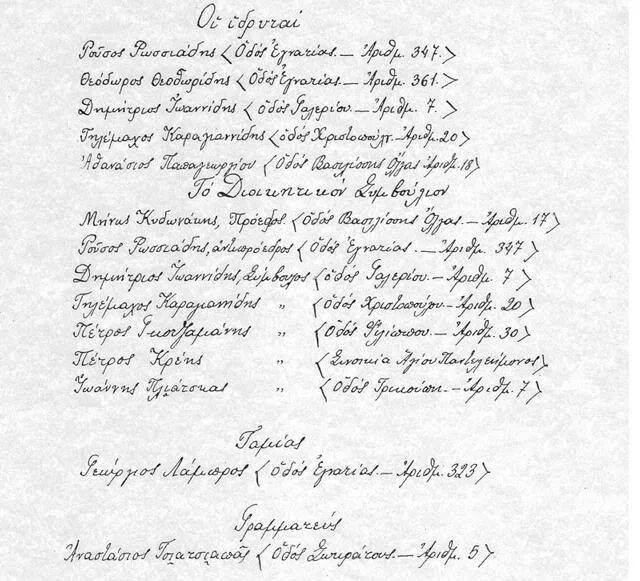 Οἱ ἱδρυταί
Ροῦσος Ρωσσιάδης 〈Ὁδός Ἐγνατίας. – Ἀριθμ. 347.〉
Θεόδωρος Θεοδωρίδης 〈Ὁδός Ἐγνατίας. – Ἀριθμ. 361.〉
Δημήτριος Ἰωαννίδης 〈Ὁδός Γαλερίου. – Ἀριθμ. 7.〉
Τηλέμαχος Καραγιαννίδης 〈ὁδός Χριστοπούλ. – Ἀριθμ. 20〉
Ἀθανάσιος Παπαγεωργίου 〈Ὁδός Βασιλίσσης Ὄλγας Ἀριθμ. 18〉
Τό Διοικητικόν Συμβούλιον
Μῆνας Κυδωνάκης, Πρόεδρος 〈Ὁδός Βασιλίσσης Ὄλγας. – Ἀριθμ. 17〉
Ροῦσος Ρωσσιάδης, ἀντιπρόεδρος 〈Ὁδός Ἐγνατίας. – Ἀριθμ. 347〉
Δημήτριος Ἰωαννίδης, Σύμβουλος 〈ὁδός Γαλερίου. – Ἀριθμ. 7〉
Τηλέμαχος Καραγιαννίδης „ 〈Ὁδός Χριστοπούλου. – Ἀριθμ. 20〉
Πέτρος Γκουζαμάνης „ 〈Ὁδός Φιλίππου. – Ἀριθμ. 30〉
Πέτρος Κρέης „ 〈Συνοικία Ἁγίου Παντελεήμονος〉
Ἰωάννης Πλιάτσκας „ 〈Ὁδός Τρικούπη. – Ἀριθμ. 7〉
Ταμίας
Γεώργιος Λάμπρος 〈Ὁδός Ἐγνατίας. – Ἀριθμ. 323〉
Γραμματεύς
Ἀναστάσιος 〈Ὁδός Σωκράτους. – Ἀριθμ. 5〉